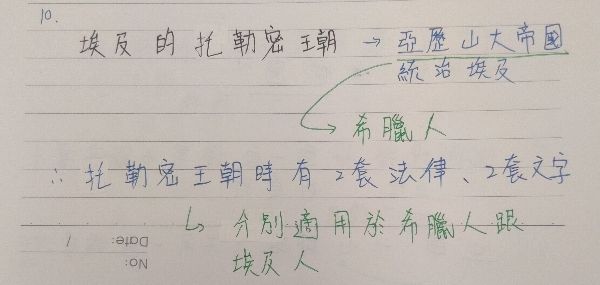 10.
埃及的托勒密王朝 → 亞歷山大帝國
統治埃及
↳ 希臘人
∴ 托勒密王朝時有2套法律、2套文字
↳ 分別適用於希臘人跟
埃及人
Date: /
No: